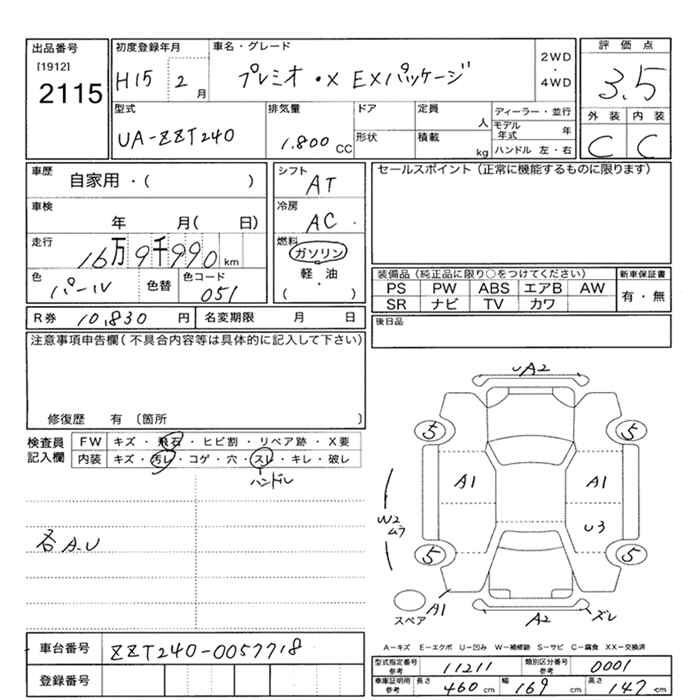 出品番号
[1912]
2115
初度登録年月
H15 2月
車名・グレード
プレミオ・X EXパッケージ
2WD
・
4WD
評価点
3.5
外装 内装
C C
型式
UA-ZZT240
排気量
1,800 CC
ドア
形状
定員
人
積載
kg
ディーラー・並行
モデル年式 年
ハンドル 左・右
車歴
自家用・( )
車検
年 月( 日)
走行
16万9千990 km
色
パール
色替
色コード
051
シフト
AT
冷房
AC
燃料
ガソリン
軽油
・
( )
セールスポイント(正常に機能するものに限ります)
装備品(純正品に限り○をつけてください)
PS PW ABS エアB AW
SR ナビ TV カワ
新車保証書
有・無
R券 10,830 円
名変期限 月 日
後日品
注意事項申告欄(不具合内容等は具体的に記入して下さい)
修復歴 有 〔箇所 〕
検査員
記入欄
FW キズ・飛石・ヒビ割・リペア跡・X要
内装 キズ・汚レ・コゲ・穴・スレ・キレ・破レ
ハンドル
各A.U
UA2
5 5
A1 A1
W2
ムラ
U3
5 5
スペア
A1
A2
ズレ
車台番号 ZZT240-0057718
登録番号
A-キズ E-エクボ U-凹み W-補修跡 S-サビ C-腐食 XX-交換済
型式指定番号
参考
11211
類別区分番号
参考
0001
車庫証明用
参考
長さ 460 cm
幅 169 cm
高さ 147 cm